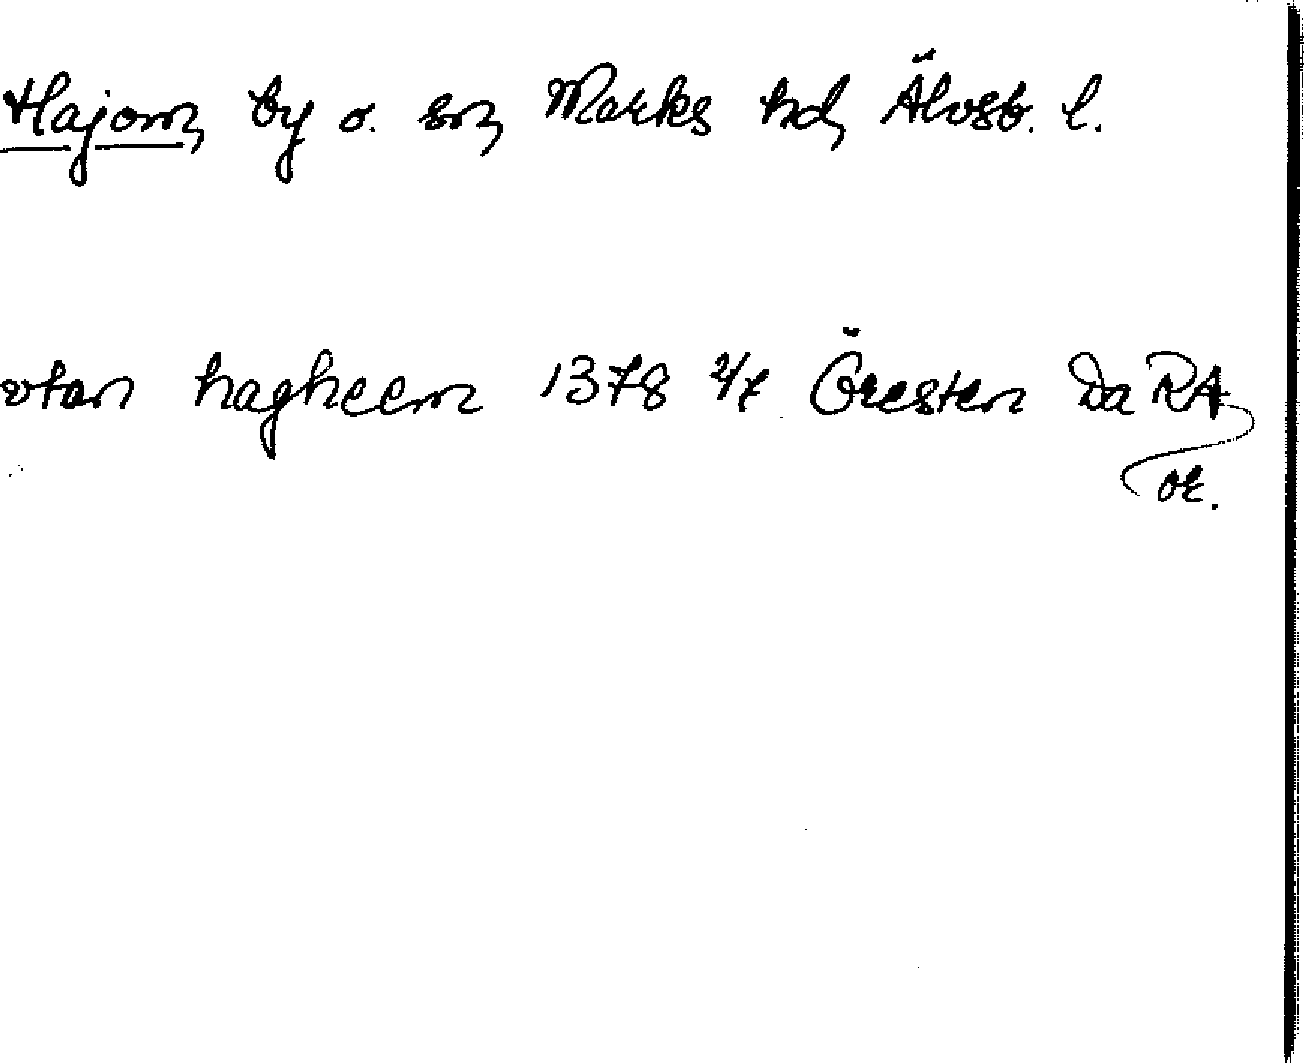 Hajom, by o. sn, Marks hd, Älvsb. l.
utan hagheem 1378 2/7 Öresten Da RA
or.